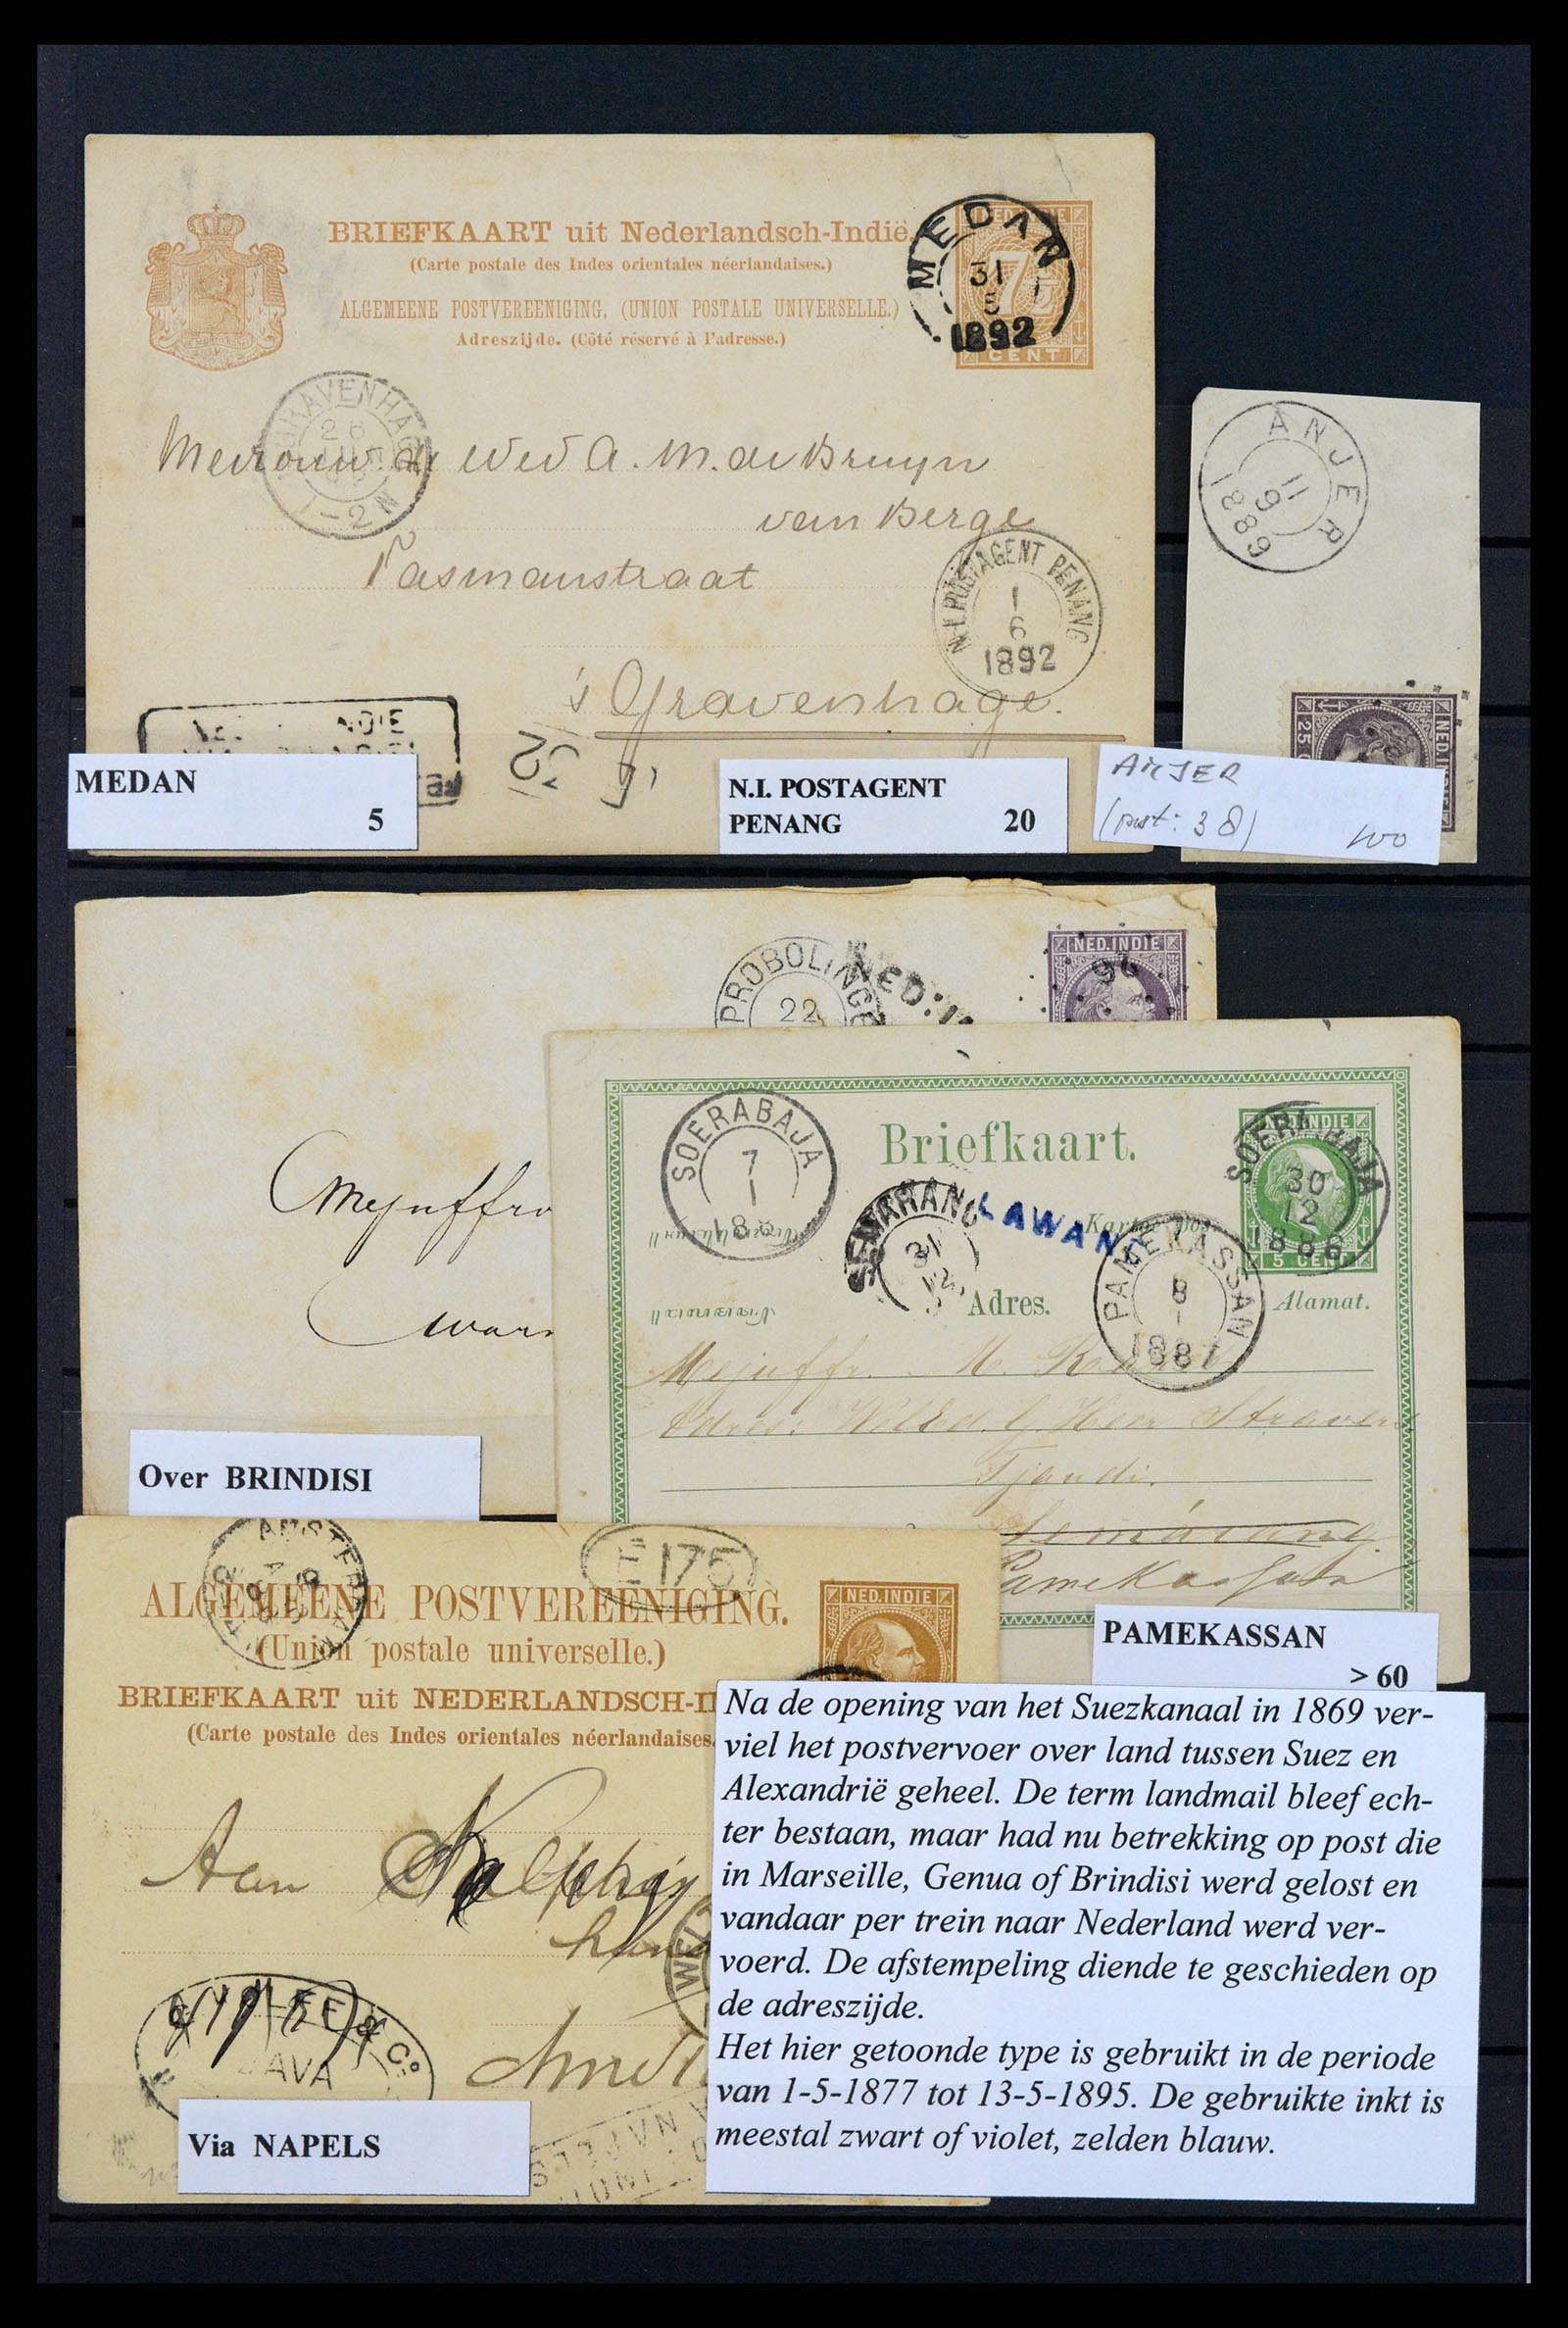 BRIEFKAART uit Nederlandsch-Indië.
(Carte postale des Indes orientales néerlandaises.)
ALGEMEENE POSTVEREENIGING. (UNION POSTALE UNIVERSELLE.)
Adreszijde. (Côté réservé à l'adresse.)
CENT
MEDAN
31
5
1892
26
1-2N
Mevrouw de Wed A. M. de Bruyn
van Berge
Tasmanstraat
's Gravenhage.
N.I. POSTAGENT PENANG
1
6
1892
MEDAN
5
N.I. POSTAGENT
PENANG 20
ANJER
11
6
1889
NED. IN
25
ANJER
(punt: 38)
100
PROBOLINGG
22
NED: I
NED. INDIE
96
Mejuffro
Over BRINDISI
SOERABAJA
7
1
188
Briefkaart.
NED. INDIE
5 CENT
SOERABAIJA
30
12
1886
SEMARANG
31
12
LAWAN
PAMEKASSAN
8
1
1887
Adres.
Alamat.
Mejuffr. M.
Adres:
Tjandi.
Semarang
Pamekassan
PAMEKASSAN
> 60
E 175
ALGEMEENE POSTVEREENIGING.
(Union postale universelle.)
NED. INDIE
BRIEFKAART uit NEDERLANDSCH-I
(Carte postale des Indes orientales néerlandaises.
Aan
WEL
& Co
JAVA
Amst
Via NAPELS
Na de opening van het Suezkanaal in 1869 ver-
viel het postvervoer over land tussen Suez en
Alexandrië geheel. De term landmail bleef ech-
ter bestaan, maar had nu betrekking op post die
in Marseille, Genua of Brindisi werd gelost en
vandaar per trein naar Nederland werd ver-
voerd. De afstempeling diende te geschieden op
de adreszijde.
Het hier getoonde type is gebruikt in de periode
van 1-5-1877 tot 13-5-1895. De gebruikte inkt is
meestal zwart of violet, zelden blauw.